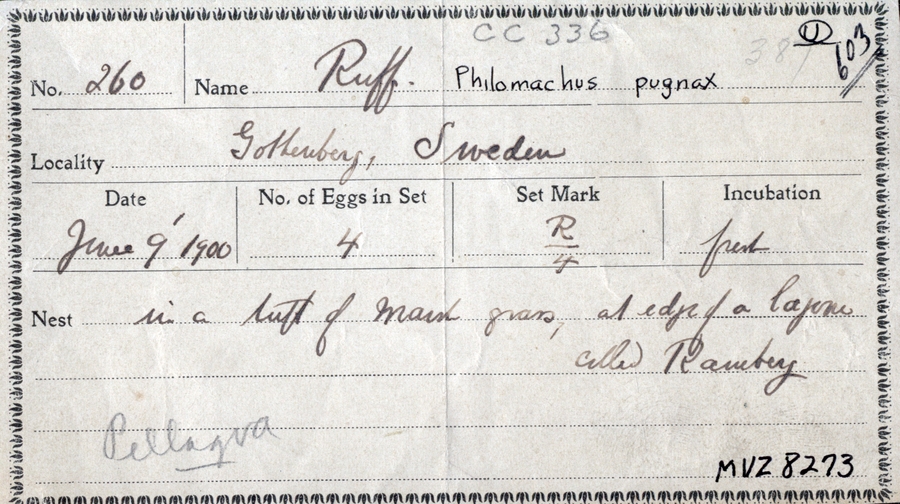 CC 336
38/ U 603
No. 260 Name Ruff. Philomachus pugnax
Locality Gothenberg, Sweden
Date No. of Eggs in Set Set Mark Incubation
June 9' 1900 4 R/4 fresh
Nest in a tuft of marsh grass, at edge of a lagone
called Ramberg
Pellagra
MVZ 8273